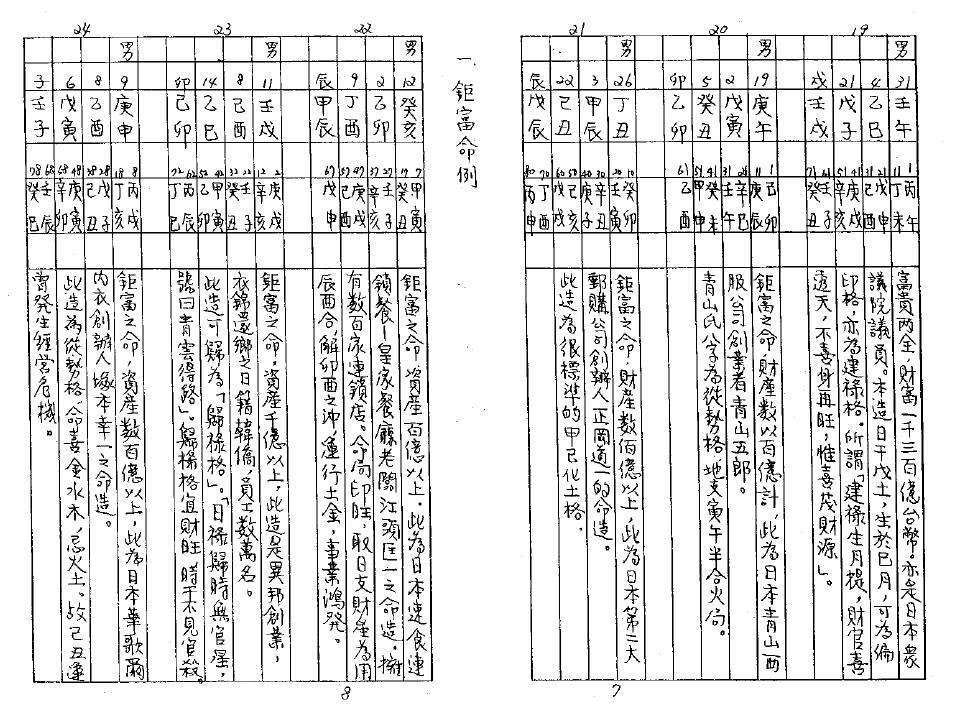 19
男
31 壬午
4 乙巳
21 戊子
戌 壬戌
1 丙午
11 丁未
21 戊申
31 己酉
41 庚戌
51 辛亥
61 壬子
71 癸丑
富貴両全，財富一千三百億台幣。亦是日本衆
議院議員。本造日干戊土，生於巳月，可為偏
印格，亦為建禄格。所謂「建禄生月提，財官喜
透天，不喜身再旺，惟喜茂財源」。
20
男
19 庚午
2 戊寅
5 癸丑
卯 乙卯
1 己卯
11 庚辰
辛巳
31 壬午
41 癸未
51 甲申
61 乙酉
鉅富之命，財産数以百億計，此為日本青山西
服公司創業者青山五郎。
青山氏八字為從勢格，地支寅午半合火局。
21
男
26 丁丑
3 甲辰
22 己丑
辰 戊辰
10 癸卯
20 壬寅
30 辛丑
40 庚子
50 己亥
60 戊戌
70 丁酉
80 丙申
鉅富之命，財産数佰億以上，此為日本第二大
郵購公司創辦人正岡道一的命造。
此造為很標準的甲己化土格。
7
一 鉅富命例
22
男
12 癸亥
2 乙卯
9 丁酉
辰 甲辰
7 甲寅
17 癸丑
27 壬子
37 辛亥
47 庚戌
57 己酉
67 戊申
鉅富之命，資産百億以上，此為日本速食連
鎖餐—皇家餐廳老闆江頭匡一之命造。擁
有数百家連鎖店。命局印旺，取日支財産為用
辰酉合，解卯酉之沖，運行土金，事業鴻発。
23
男
11 壬戌
8 己酉
14 乙巳
卯 己卯
2 庚戌
12 辛亥
22 壬子
32 癸丑
42 甲寅
52 乙卯
62 丙辰
72 丁巳
鉅富之命，資産千億以上，此造是異邦創業，
衣錦還鄉之日籍韓僑，員工数萬名。
此造可歸為「歸禄格」。「日禄歸時無官星，
號曰青雲得路」。歸禄格宜財旺，時干不見官殺。
24
男
9 庚申
8 乙酉
6 戊寅
子 壬子
8 丙戌
18 丁亥
28 戊子
38 己丑
48 庚寅
58 辛卯
68 壬辰
78 癸巳
鉅富之命，資産数百億以上，此為日本華歌爾
内衣創辦人塚本幸一之命造。
此造為從勢格，命喜金水木，忌火土。故己丑運
曾発生経営危機。
8